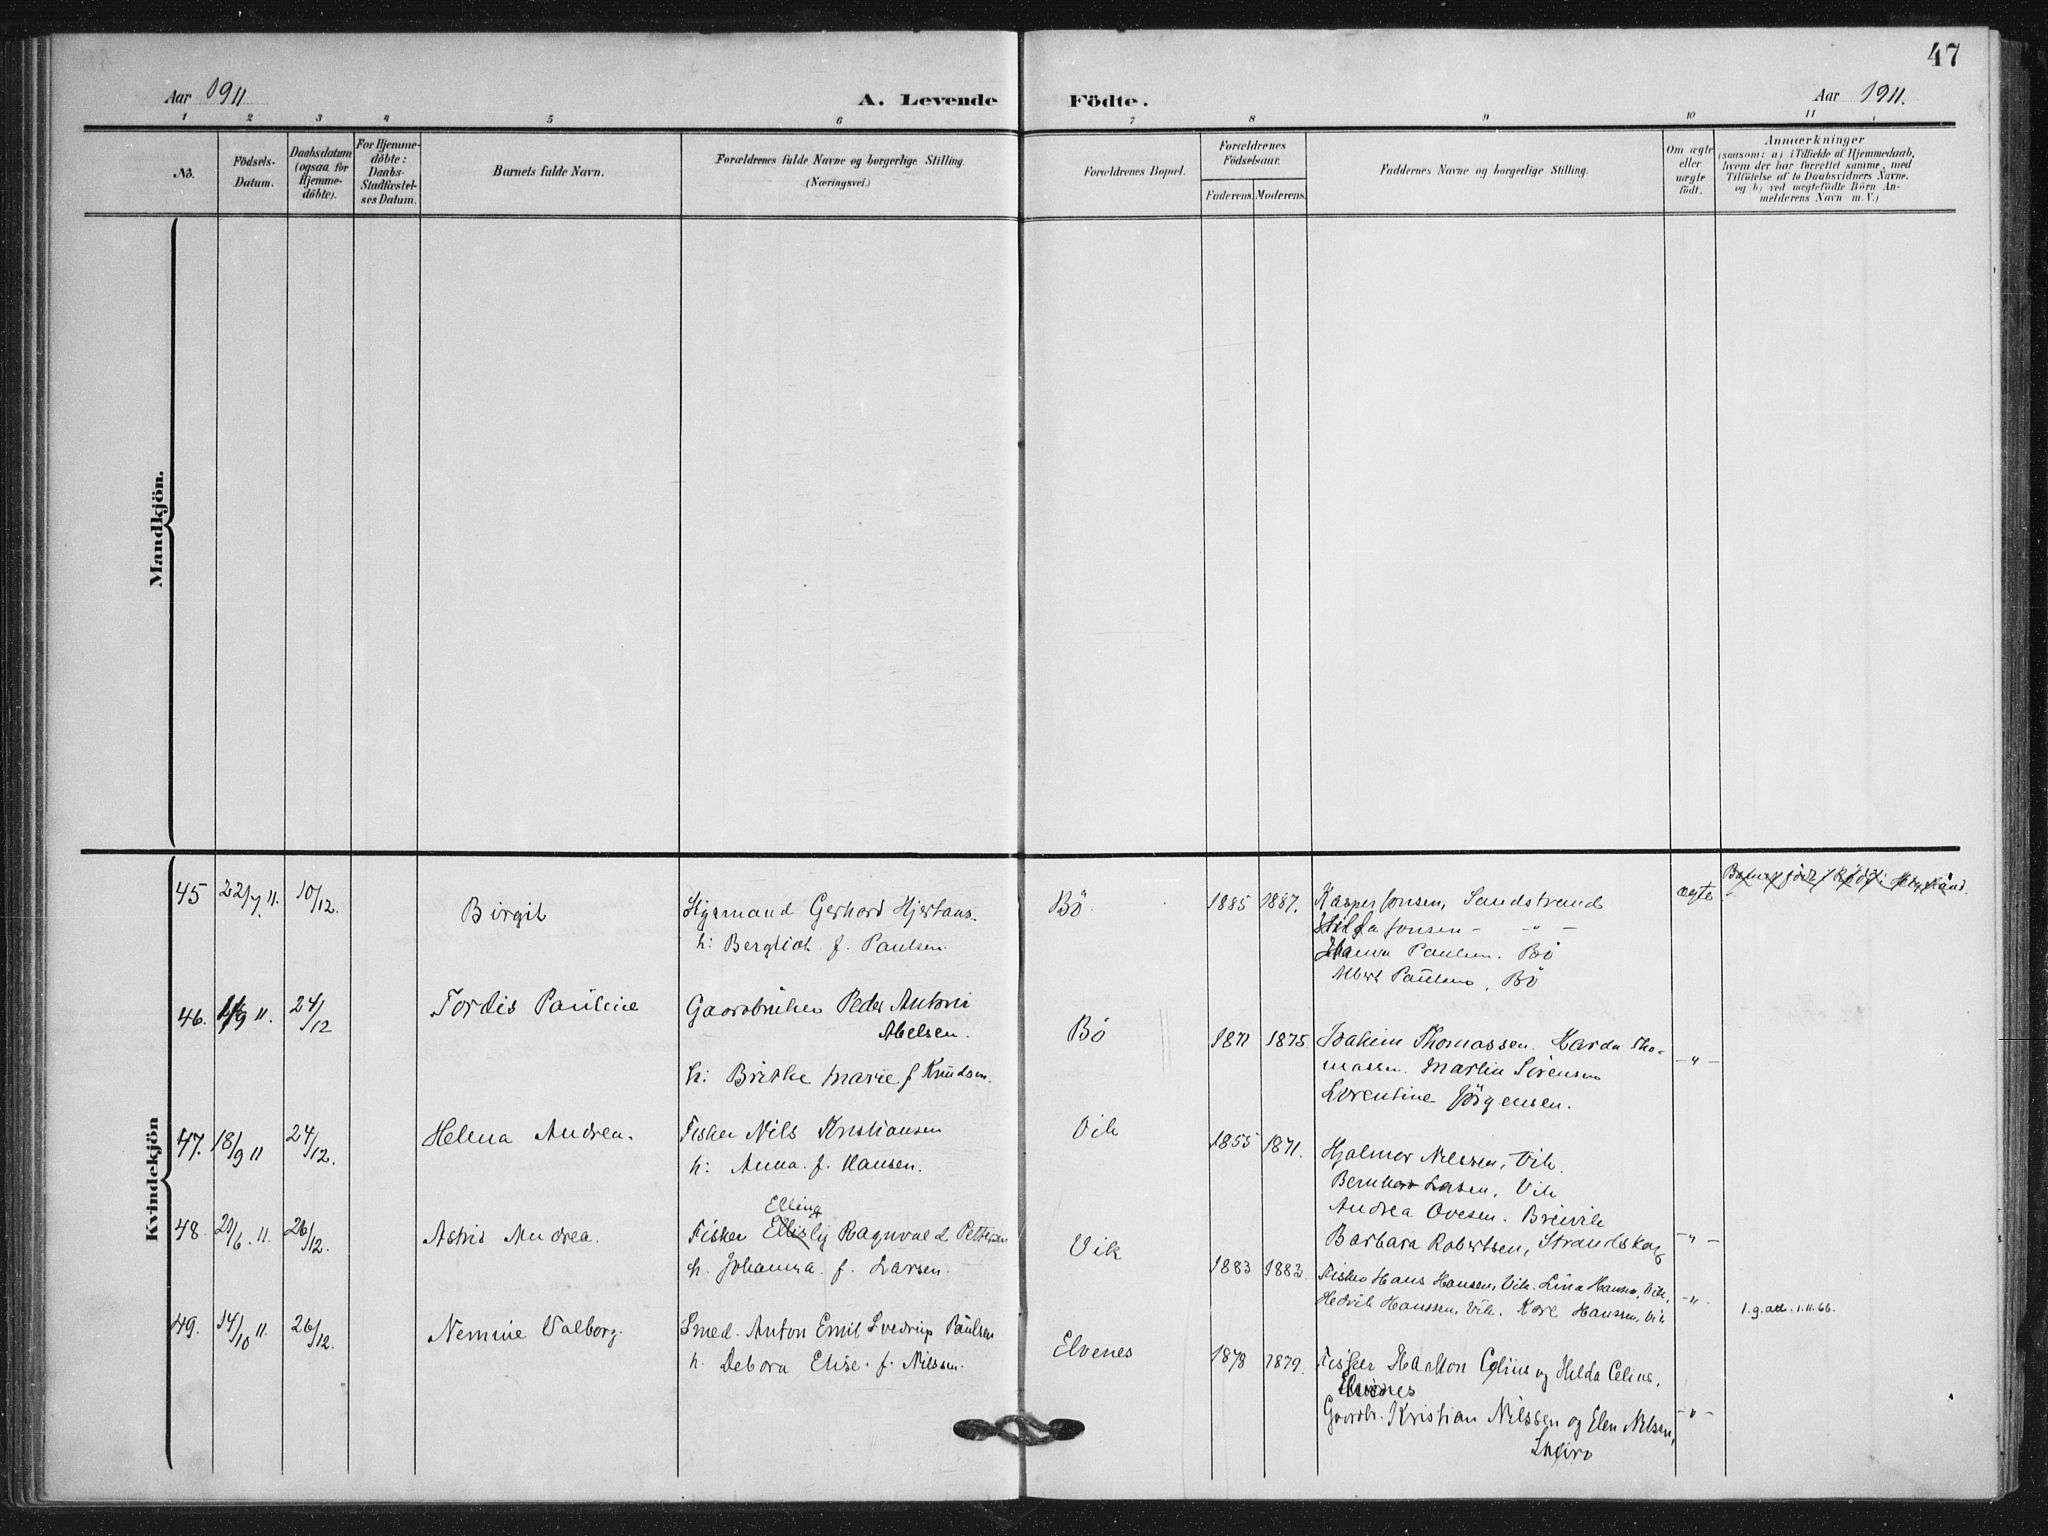 47
Aar 1911
A. Levende Födte.
Aar 1911.
1 2 3 4 5 6 7 8 9 10 11
No.
Födsels-
Datum.
Daabsdatum
(ogsaa for
Hjemme-
döbte).
For Hjemme-
döbte:
Daabs-
Stadfæstel-
ses Datum.
Barnets fulde Navn.
Forældrenes fulde Navne og borgerlige Stilling.
(Næringsvei.)
Forældrenes Bopæl.
Forældrenes
Födselsaar.
Faderens. Moderens.
Faddernes Navne og borgerlige Stilling.
Om ægte
eller
uægte
födt.
Anmærkninger
(saasom: a) i Tilfælde af Hjemmedaab,
hvem der har forrettet samme, med
Tilföielse af to Daabsvidners Navne.
og b) ved uægtefödte Börn An-
melderens Navn m. V.)
Mandkjön.
Kvindekjön
45 22/7 11. 10/12. Birgit
Sigsmund Gerhard Hjertaas
h: Bergliot f. Paulsen.
Bö. 1885 1887.
Kasper Jonsen, Sandstrand
Jonsen - " -
Paulsen. Bö
Albert Paulsen, Bö
ægte
46. 9 11. 24/12 Tordis Pauline
Gaardbruker Peder Antoni
Abelsen.
h: Brithe Marie f Knudsen.
Bö 1871 1875.
Joakim Thomassen. Harda Tho-
massen. Martin Sörensen
Lorentine Jörgensen.
- " -
47. 18/9 11 24/12. Helena Andrea.
Fisker Nils Kristiansen
h: Anna f. Hansen.
Vik 1855 1871.
Hjalmar Nilssen, Vik.
Bernhard Larsen, Vik
Andrea Ovesen. Breivik
Barbara Robertsen, Strandskog
- " -
48. 21/6. 11. 26/12. Astrid Andrea.
Elling
Fisker Ragnvald Pettersen
h. Johanna f. Larsen.
Vik 1883 1882.
Fisker Hans Hansen, Vik. Lina Hansen, Vik,
Hedvik Hanssen, Vik. Kore Hanssen, Vik
- " -
1.g. att. 1.11.66.
49. 14/10 11. 26/12. Nemine Valborg.
Smed. Anton Emil Svedrup Paulsen
h. Debora Elise f. Nilssen.
Elvenes 1878 1879.
Fisker Haakon Celius og Hilda Celius,
Elvenes
Gaardbr. Kristian Nilssen og Elen Nilsen,
- " -